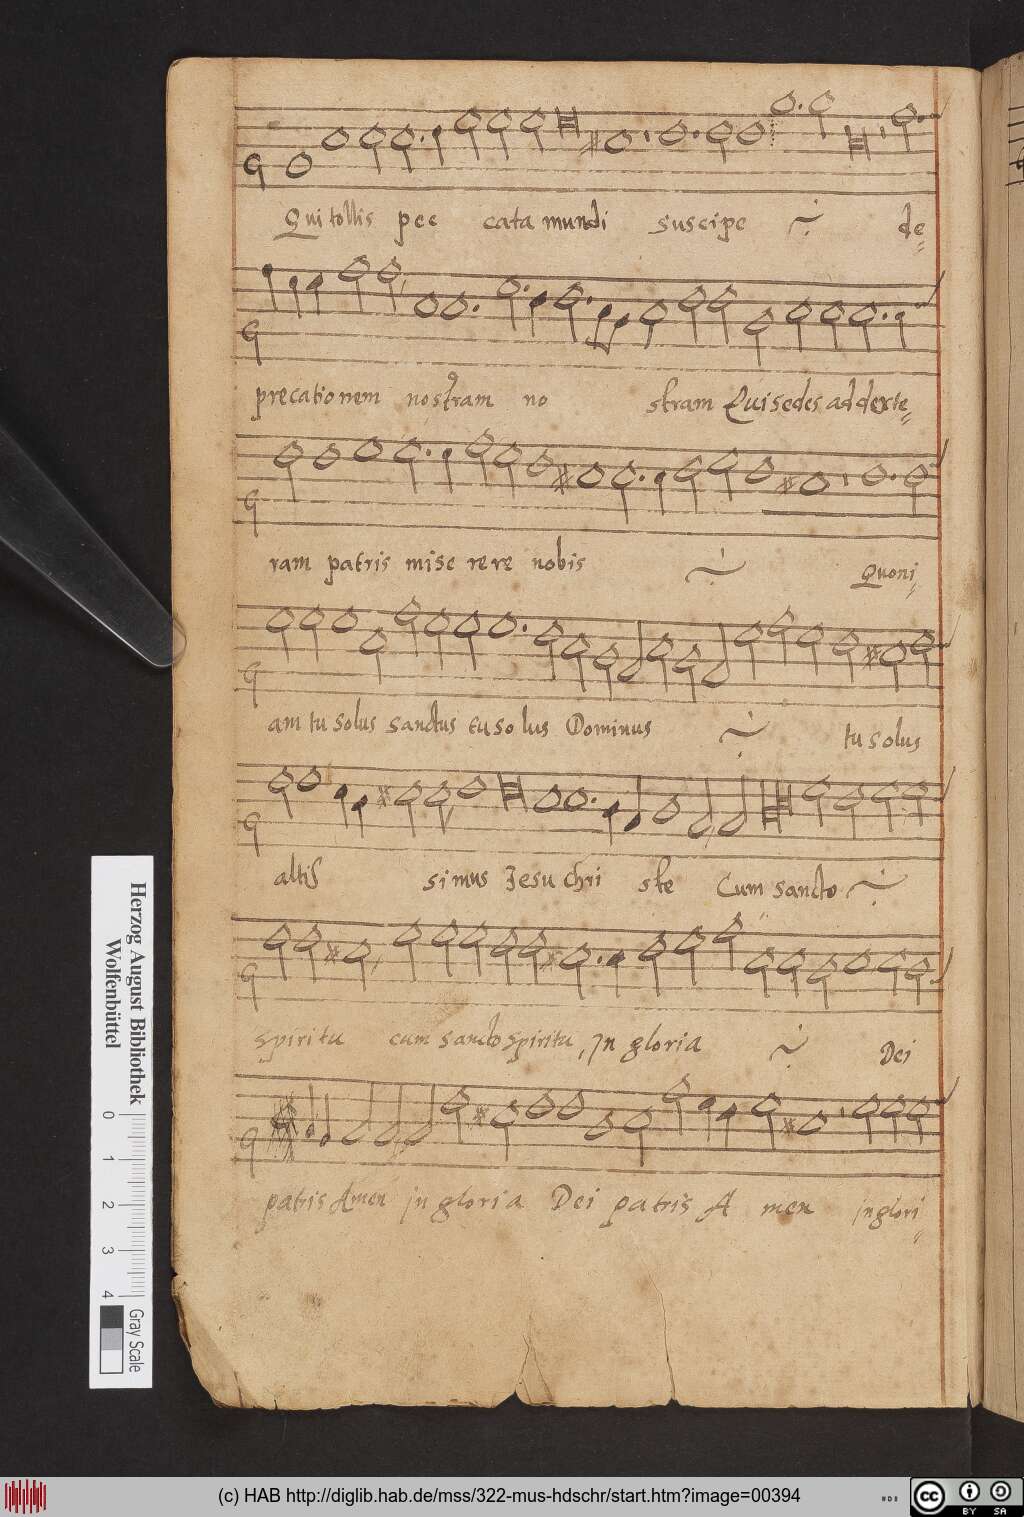 Qui tollis pec cata mundi suscipe de=
precationem nostram no stram Qui sedes ad dexte=
ram patris mise rere nobis Quoni=
am tu solus sanctus tu so lus Dominus tu solus
altis simus Jesu Chri ste Cum sancto
spiritu cum sancto spiritu, Jn gloria Dei
patris Amen jn gloria Dei patris A men jn glori=
Herzog August Bibliothek
Wolfenbüttel
0 1 2 3 4
Gray Scale
(c) HAB http://diglib.hab.de/mss/322-mus-hdschr/start.htm?image=00394
cc BY SA